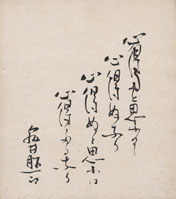 心得たと思ふは
心得ぬなり
心得ぬと思ふは
心得たるなり
亀井勝一郎